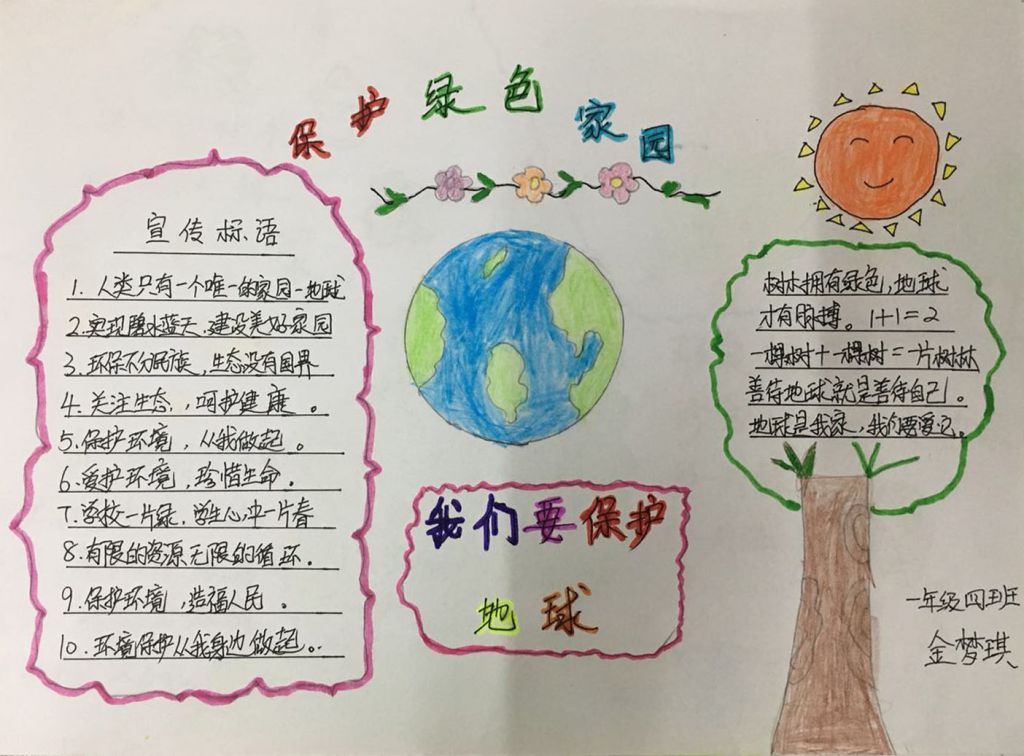 保护绿色家园
宣传标语
1. 人类只有一个唯一的家园-地球
2. 实现碧水蓝天、建设美好家园
3. 环保不分民族，生态没有国界
4. 关注生态，呵护健康。
5. 保护环境，从我做起。
6. 爱护环境，珍惜生命。
7. 学校一片绿，学生心中一片春
8. 有限的资源无限的循环。
9. 保护环境，造福人民。
10. 环境保护从我身边做起。
我们要保护
地球
树木拥有绿色，地球
才有脉搏。1+1=2
一棵树+一棵树=一片树林
善待地球就是善待自己。
地球是我家，我们要爱它。
一年级四班
金梦琪